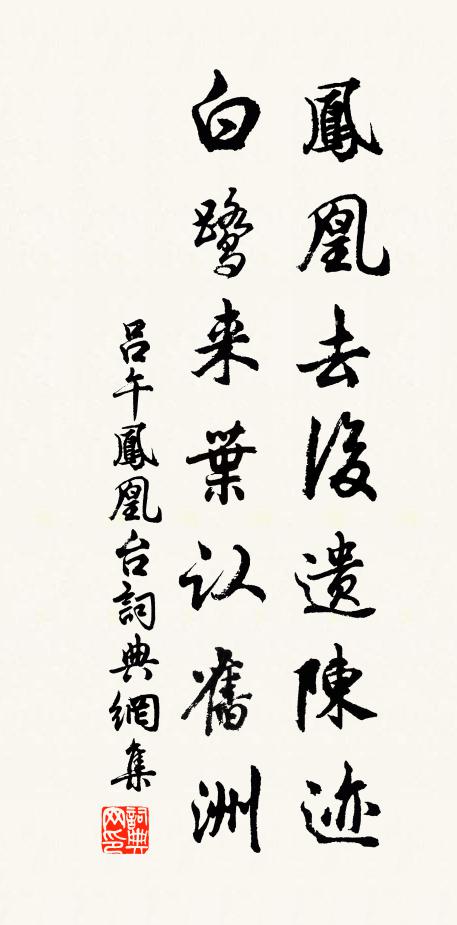 鳳凰去後遺陳迹
白鷺来葉认舊洲
吕午鳳凰台詞典網集
詞典网印